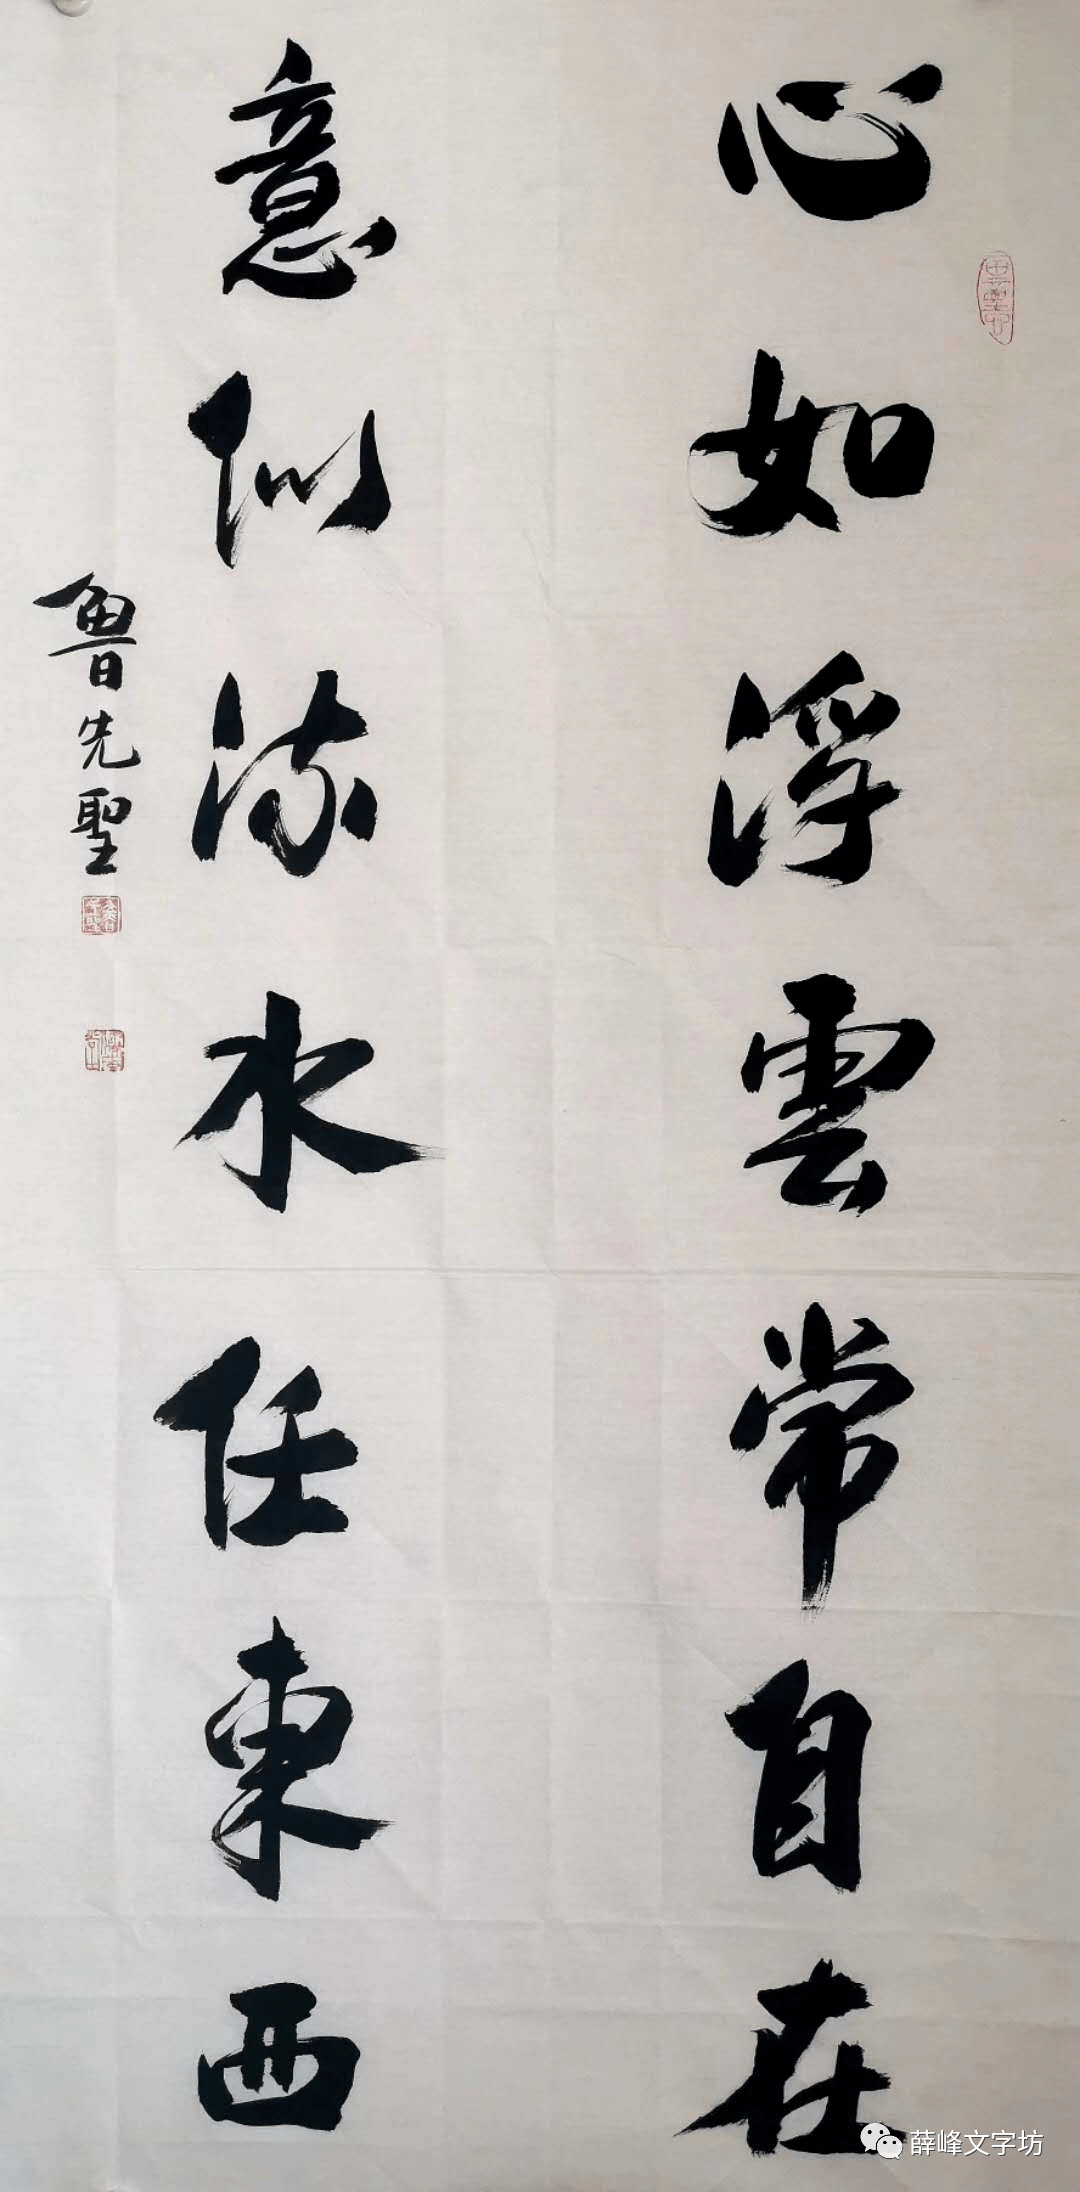 心如浮雲常自在
意似流水任東西
魯先聖
薛峰文字坊